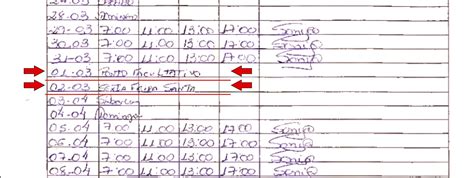 28-03 Domingo
29-03 7:00 11:00 13:00 17:00
30.03 7:00 11:00 13:00 17:00
31-03 7:00 11:00 13:00 17:00
01-03 PONTO FACULTATIVO
02-03 SEXTA FEIRA SANTA
03-04 Sabado
04-04 Domingo
05.04 7:00 11:00 13:00 17:00
06.04 7:00 11:00 13:00 17:00
07.04 7:00 11:00 13:00 17:00
08.04 7:00 11:00 13:00 17:00